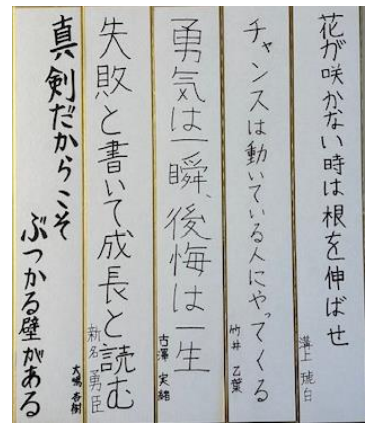 花が咲かない時は根を伸ばせ
溝上 琥白
チャンスは動いている人にやってくる
竹井 乙葉
勇気は一瞬、後悔は一生
古澤 実緒
失敗と書いて成長と読む
新名 勇臣
真剣だからこそ
ぶつかる壁がある
大嶋 杏樹